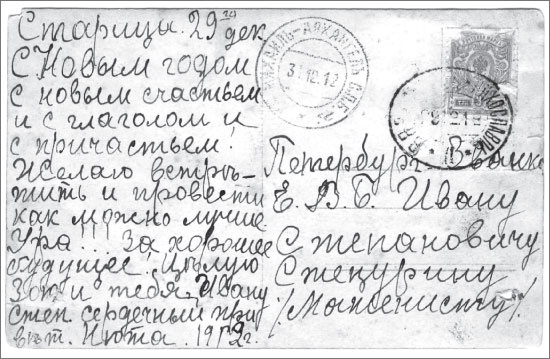 Старица. 29го дек
С Новым годом
с новым счастьем
и с глаголом и
с причастьем!
Желаю встрѣ-
тить и провести
как можно лучше
Ура!!! За хорошее
будущее! Цѣлую
Зою и тебя. Ивану
Степ. сердечный при
вѣт. Нюта. 1912 г.
МИХАИЛЪ-АРХАНГЕЛ
31.12.12
Петербург В.
Е. В. Б. Ивану
Степановичу
Стецурину